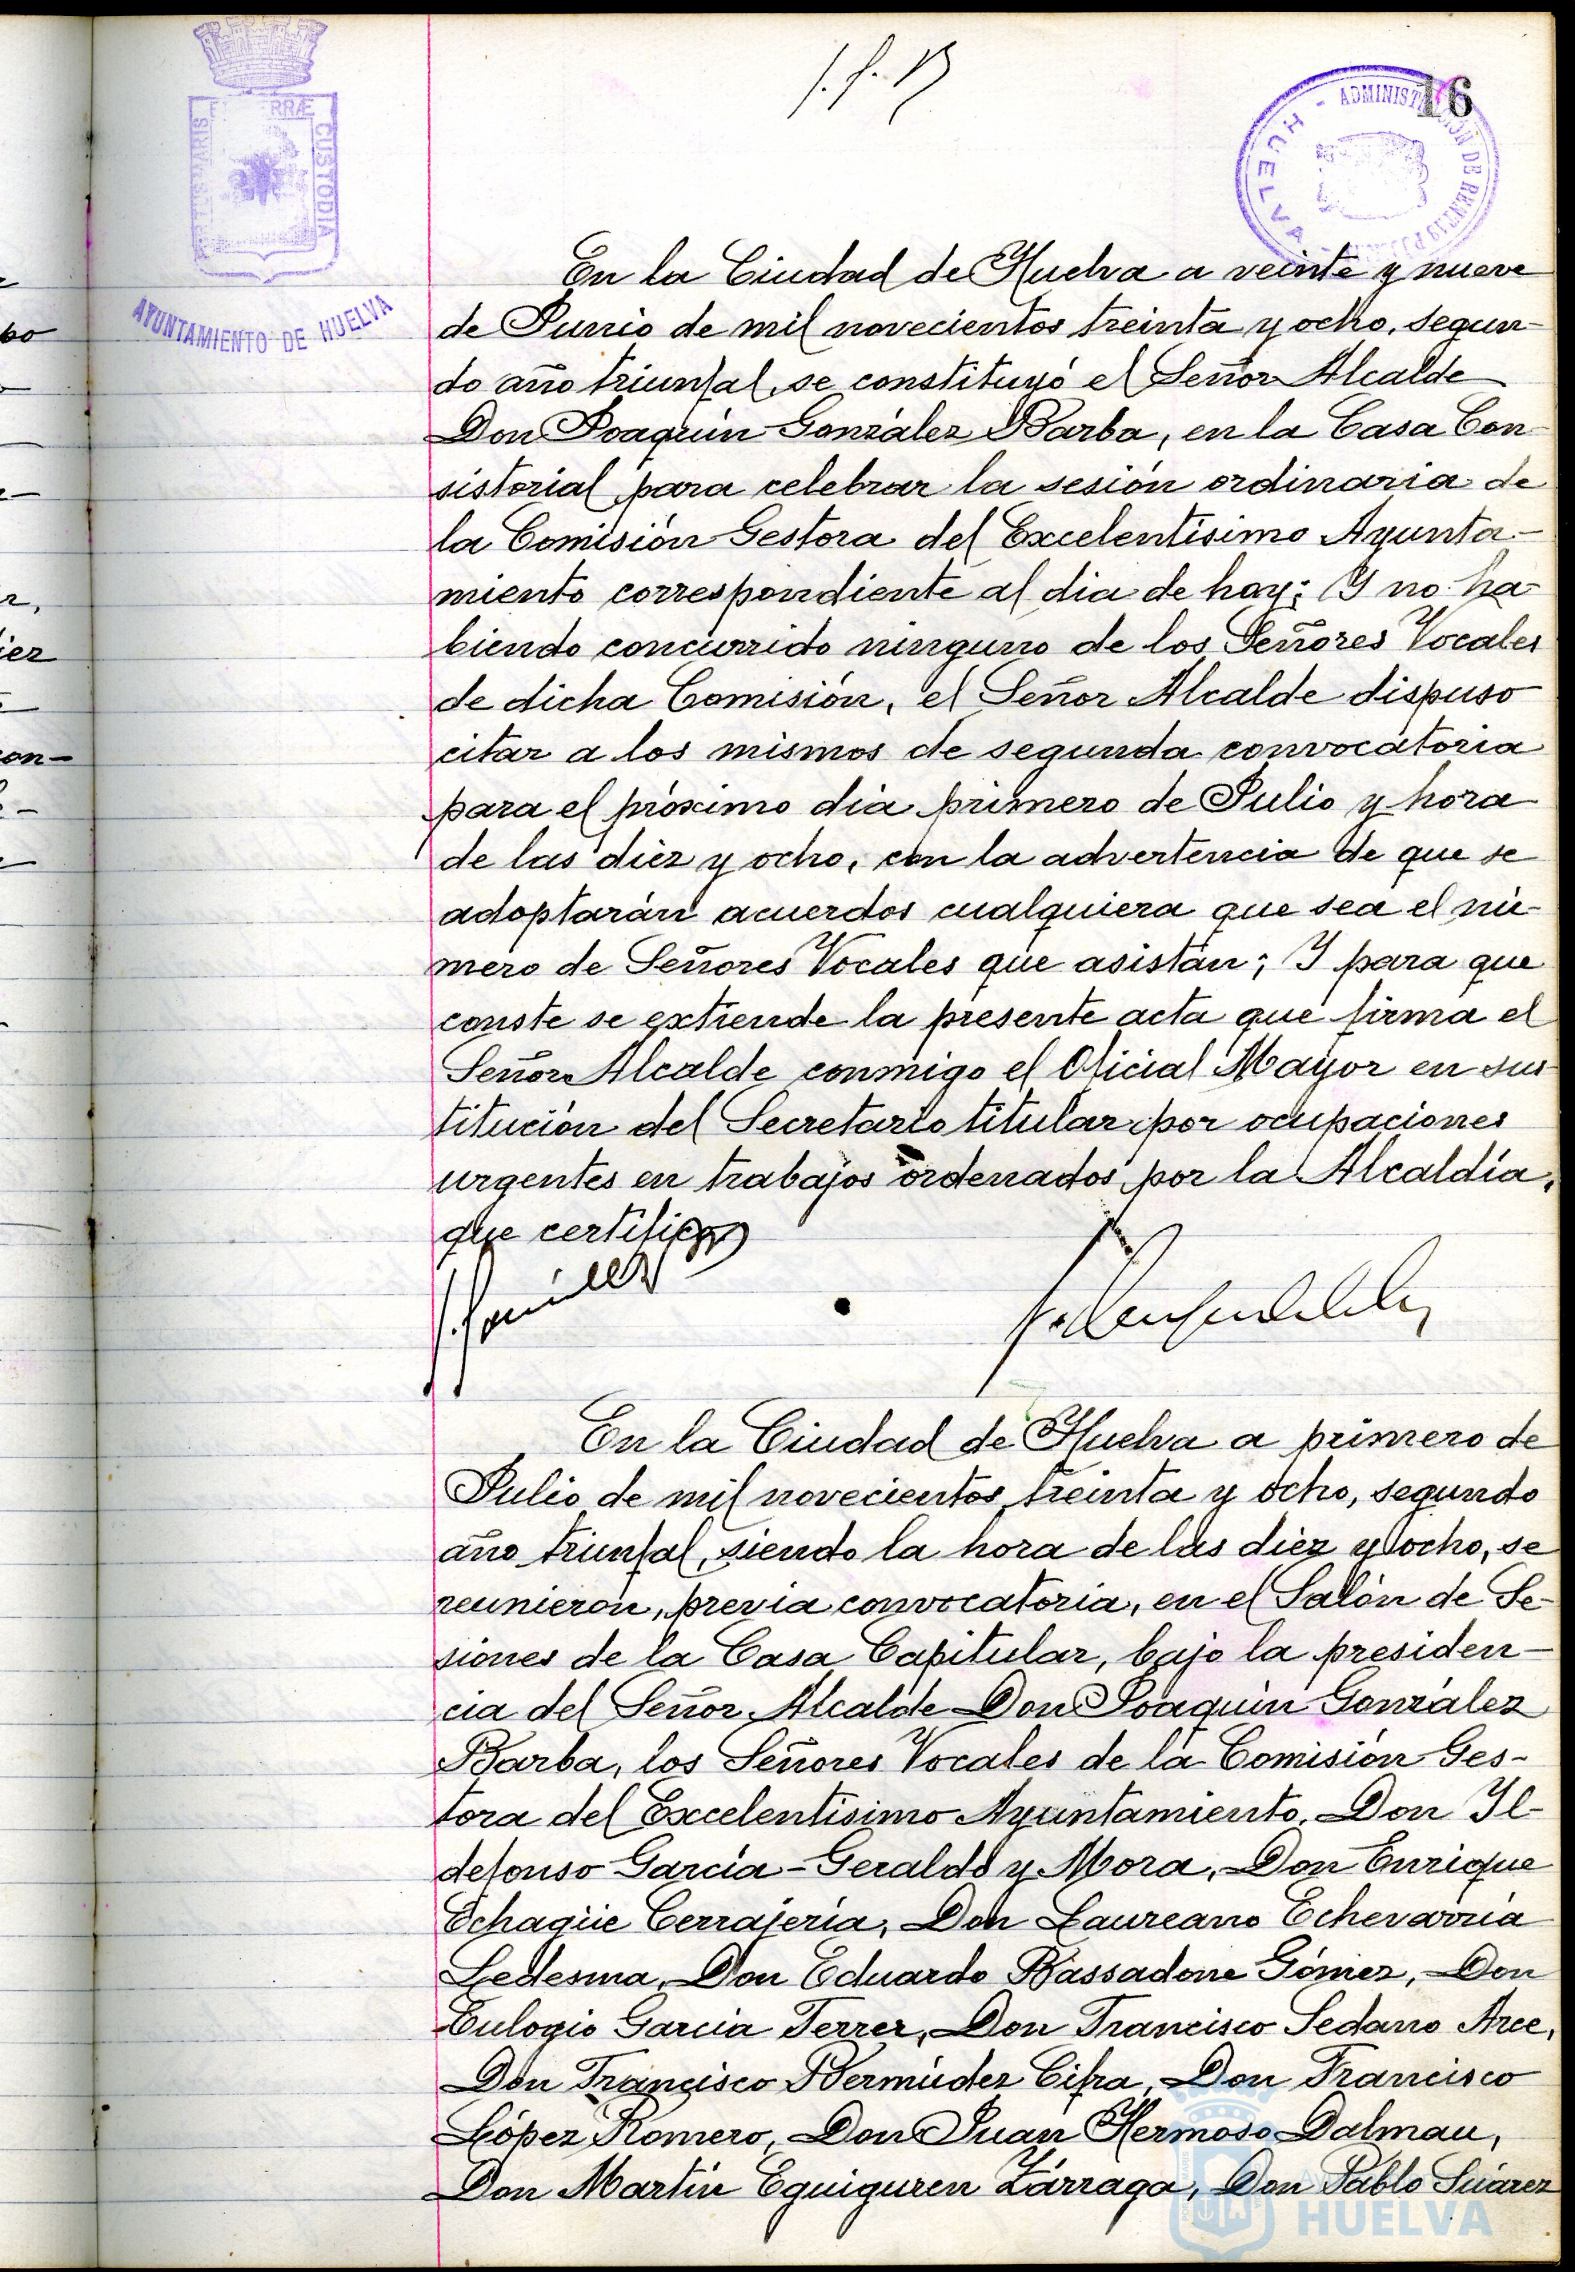 16
PORTUS MARIS ET TERRÆ CUSTODIA
AYUNTAMIENTO DE HUELVA
ADMINISTRACIÓN DE RENTAS
HUELVA
En la Ciudad de Huelva a veinte y nueve
de Junio de mil novecientos treinta y ocho, segun-
do año triunfal, se constituyó el Señor Alcalde
Don Joaquín González Barba, en la Casa Con
sistorial para celebrar la sesión ordinaria de
la Comisión Gestora del Excelentísimo Ayunta-
miento correspondiente al dia de hoy; Y no ha-
biendo concurrido ninguno de los Señores Vocales
de dicha Comisión, el Señor Alcalde dispuso
citar a los mismos de segunda convocatoria
para el próximo dia primero de Julio y hora
de las diez y ocho, con la advertencia de que se
adoptarán acuerdos cualquiera que sea el nú-
mero de Señores Vocales que asistan; Y para que
conste se extiende la presente acta que firma el
Señor Alcalde conmigo el Oficial Mayor en sus-
titución del Secretario titular por ocupaciones
urgentes en trabajos ordenados por la Alcaldía,
que certifico
En la Ciudad de Huelva a primero de
Julio de mil novecientos treinta y ocho, segundo
año triunfal, siendo la hora de las diez y ocho, se
reunieron, previa convocatoria, en el Salón de Se-
siones de la Casa Capitular, bajo la presiden-
cia del Señor Alcalde Don Joaquín González
Barba, los Señores Vocales de la Comisión Ges-
tora del Excelentísimo Ayuntamiento, Don Il-
defonso García-Geraldo y Mora, Don Enrique
Echagüe Cerrajería, Don Laureano Echevarría
Ledesma, Don Eduardo Bassadone Gómez, Don
Eulogio García Ferrer, Don Francisco Sedano Arce,
Don Francisco Bermúdez Cifra, Don Francisco
López Romero, Don Juan Hermoso Dalmau,
Don Martín Eguiguren Zárraga, Don Pablo Suárez
HUELVA